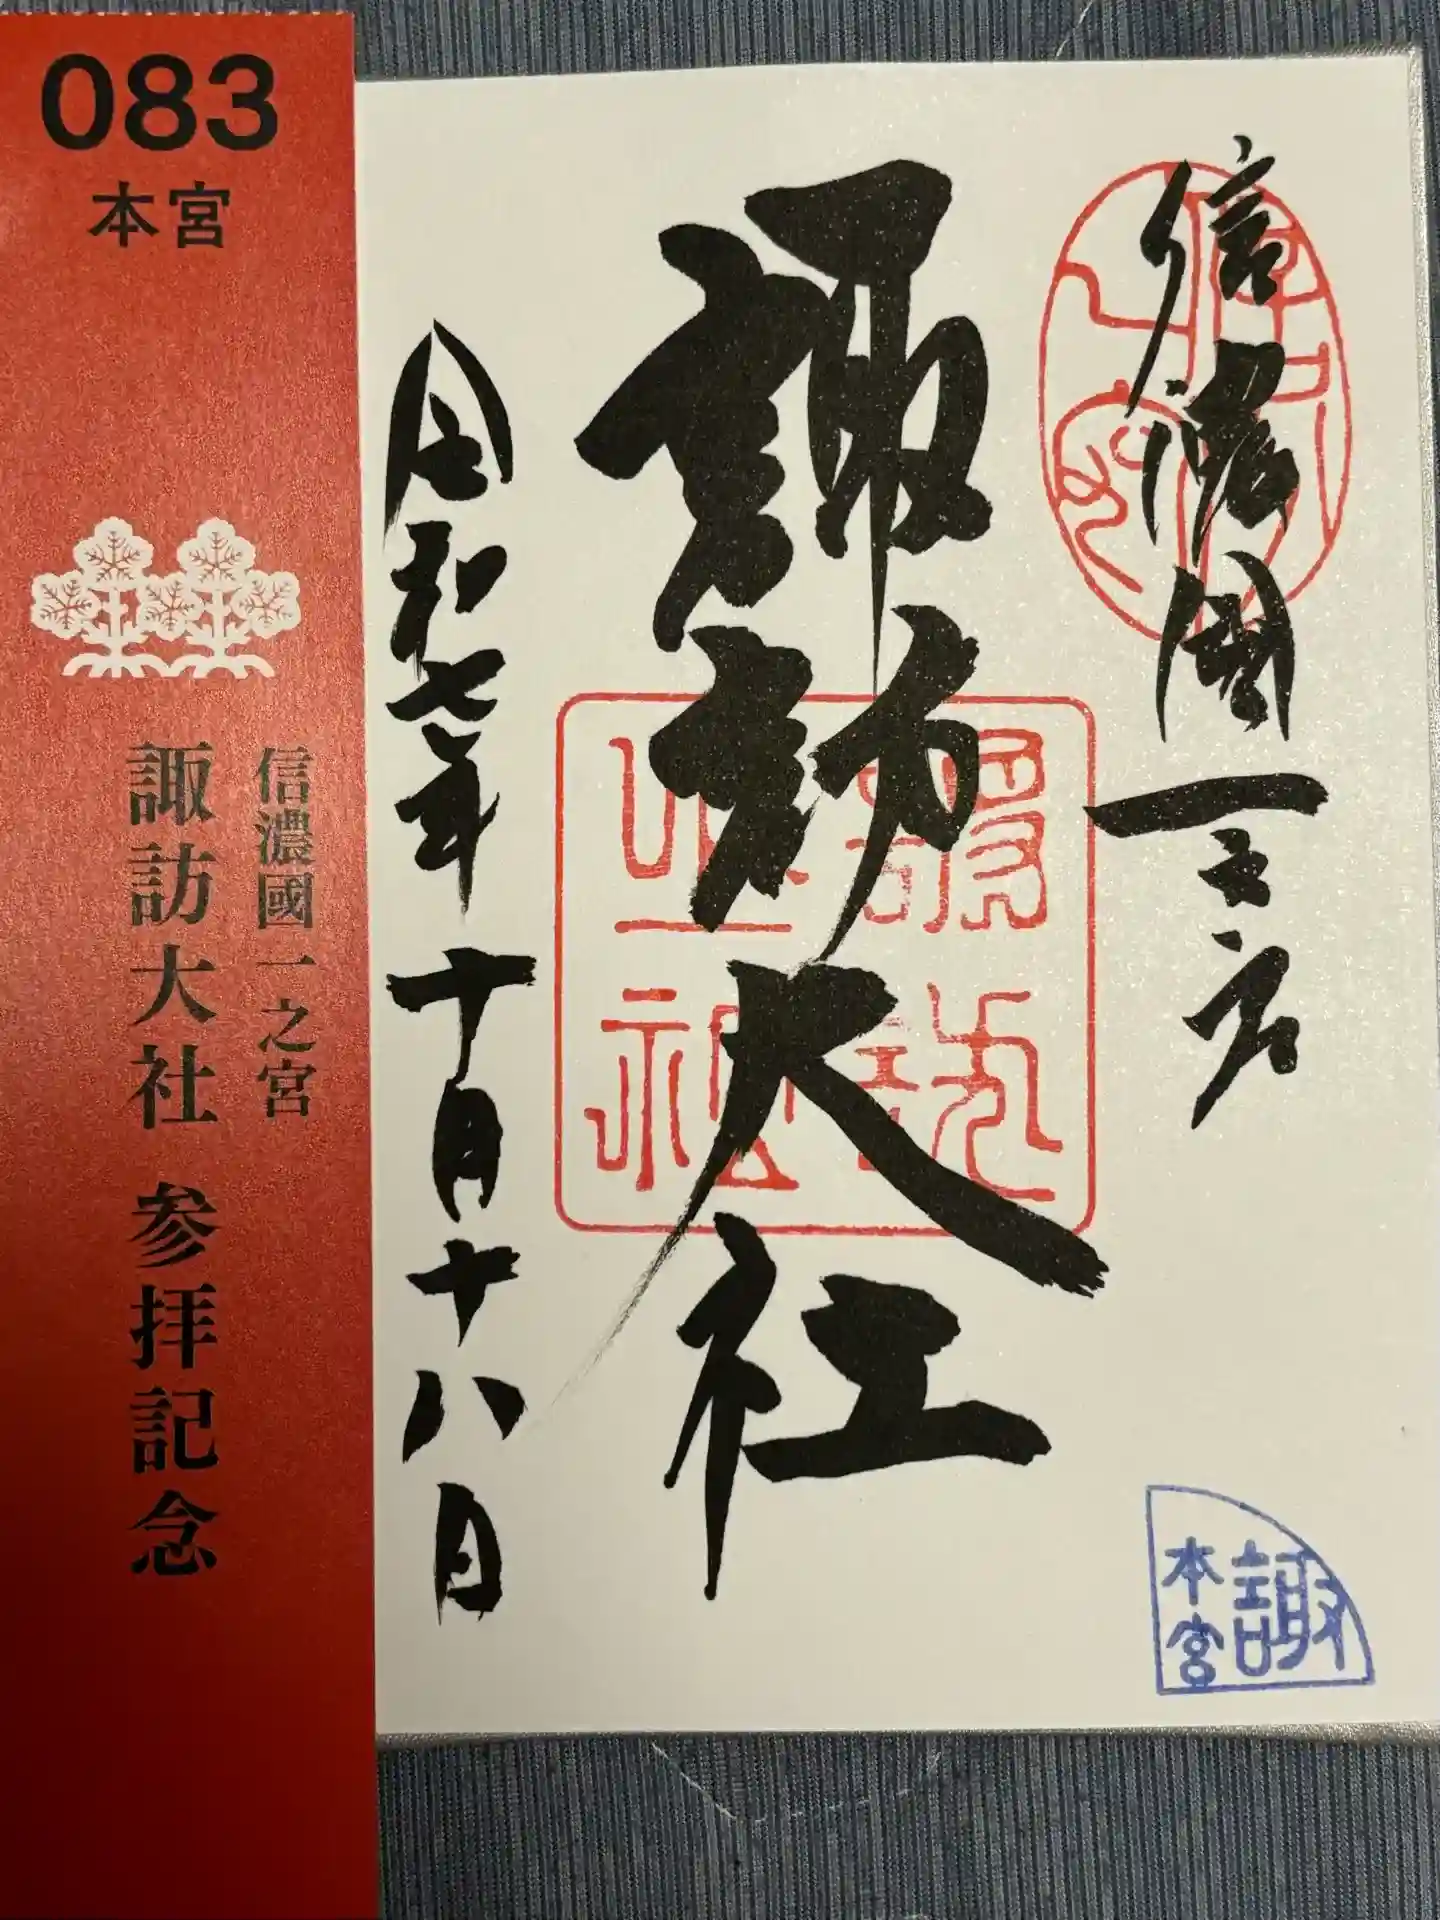 083
本宮
信濃國一之宮
諏訪大社 参拝記念
信濃國一之宮
諏訪大社
令和七年十月十八日
諏
本宮